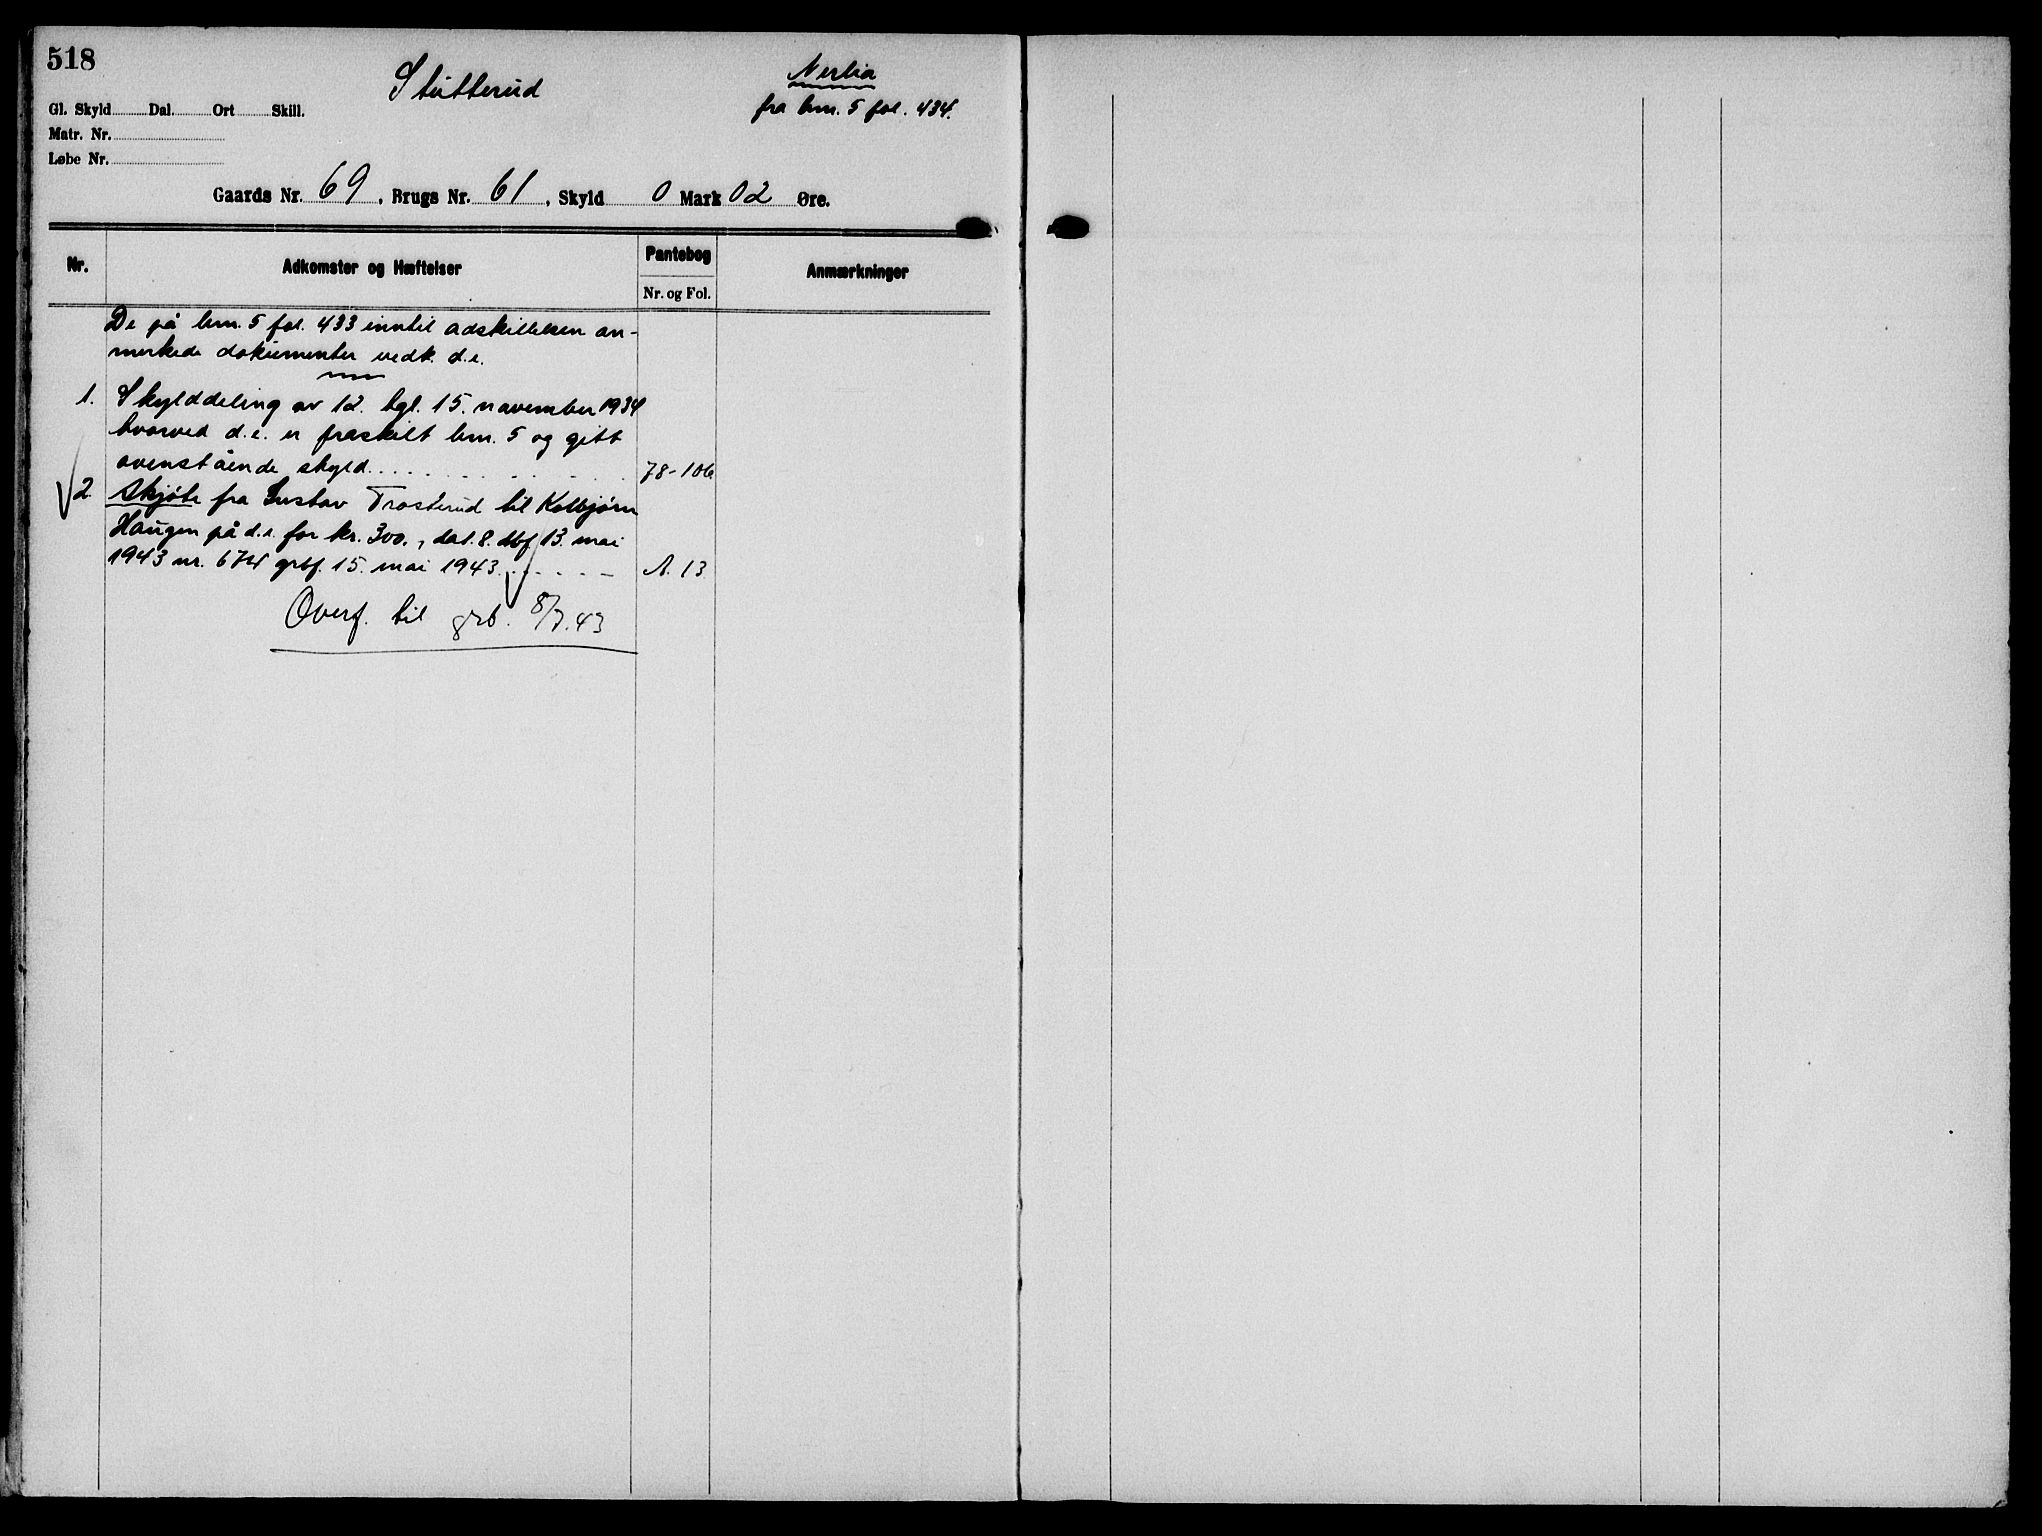 518
Stutterud
Nerlia
fra brn. 5 fol. 434.
Gl. Skyld Dal. Ort Skill.
Matr. Nr.
Løbe Nr.
Gaards Nr. 69, Brugs Nr. 61, Skyld 0 Mark 02 Øre.
Nr.
Adkomster og Hæftelser
Pantebog
Nr. og Fol.
Anmærkninger
De på brn. 5 fol. 433 inntil adskillelsen an-
merkede dokumenter vedk. d.e.
1. Skylddeling av 12. tgl. 15. november 1934
hvorved d.e. er fraskilt brn. 5 og gitt
ovenstående skyld. 78-106
2 Skjøte fra Gustav Trosterud til Kolbjørn
Haugen på d.e. for kr. 300., dat. 8. dbf 13. mai
1943 nr. 674 grbf. 15. mai 1943. A. 13
Overf. til grb. 8/7.43